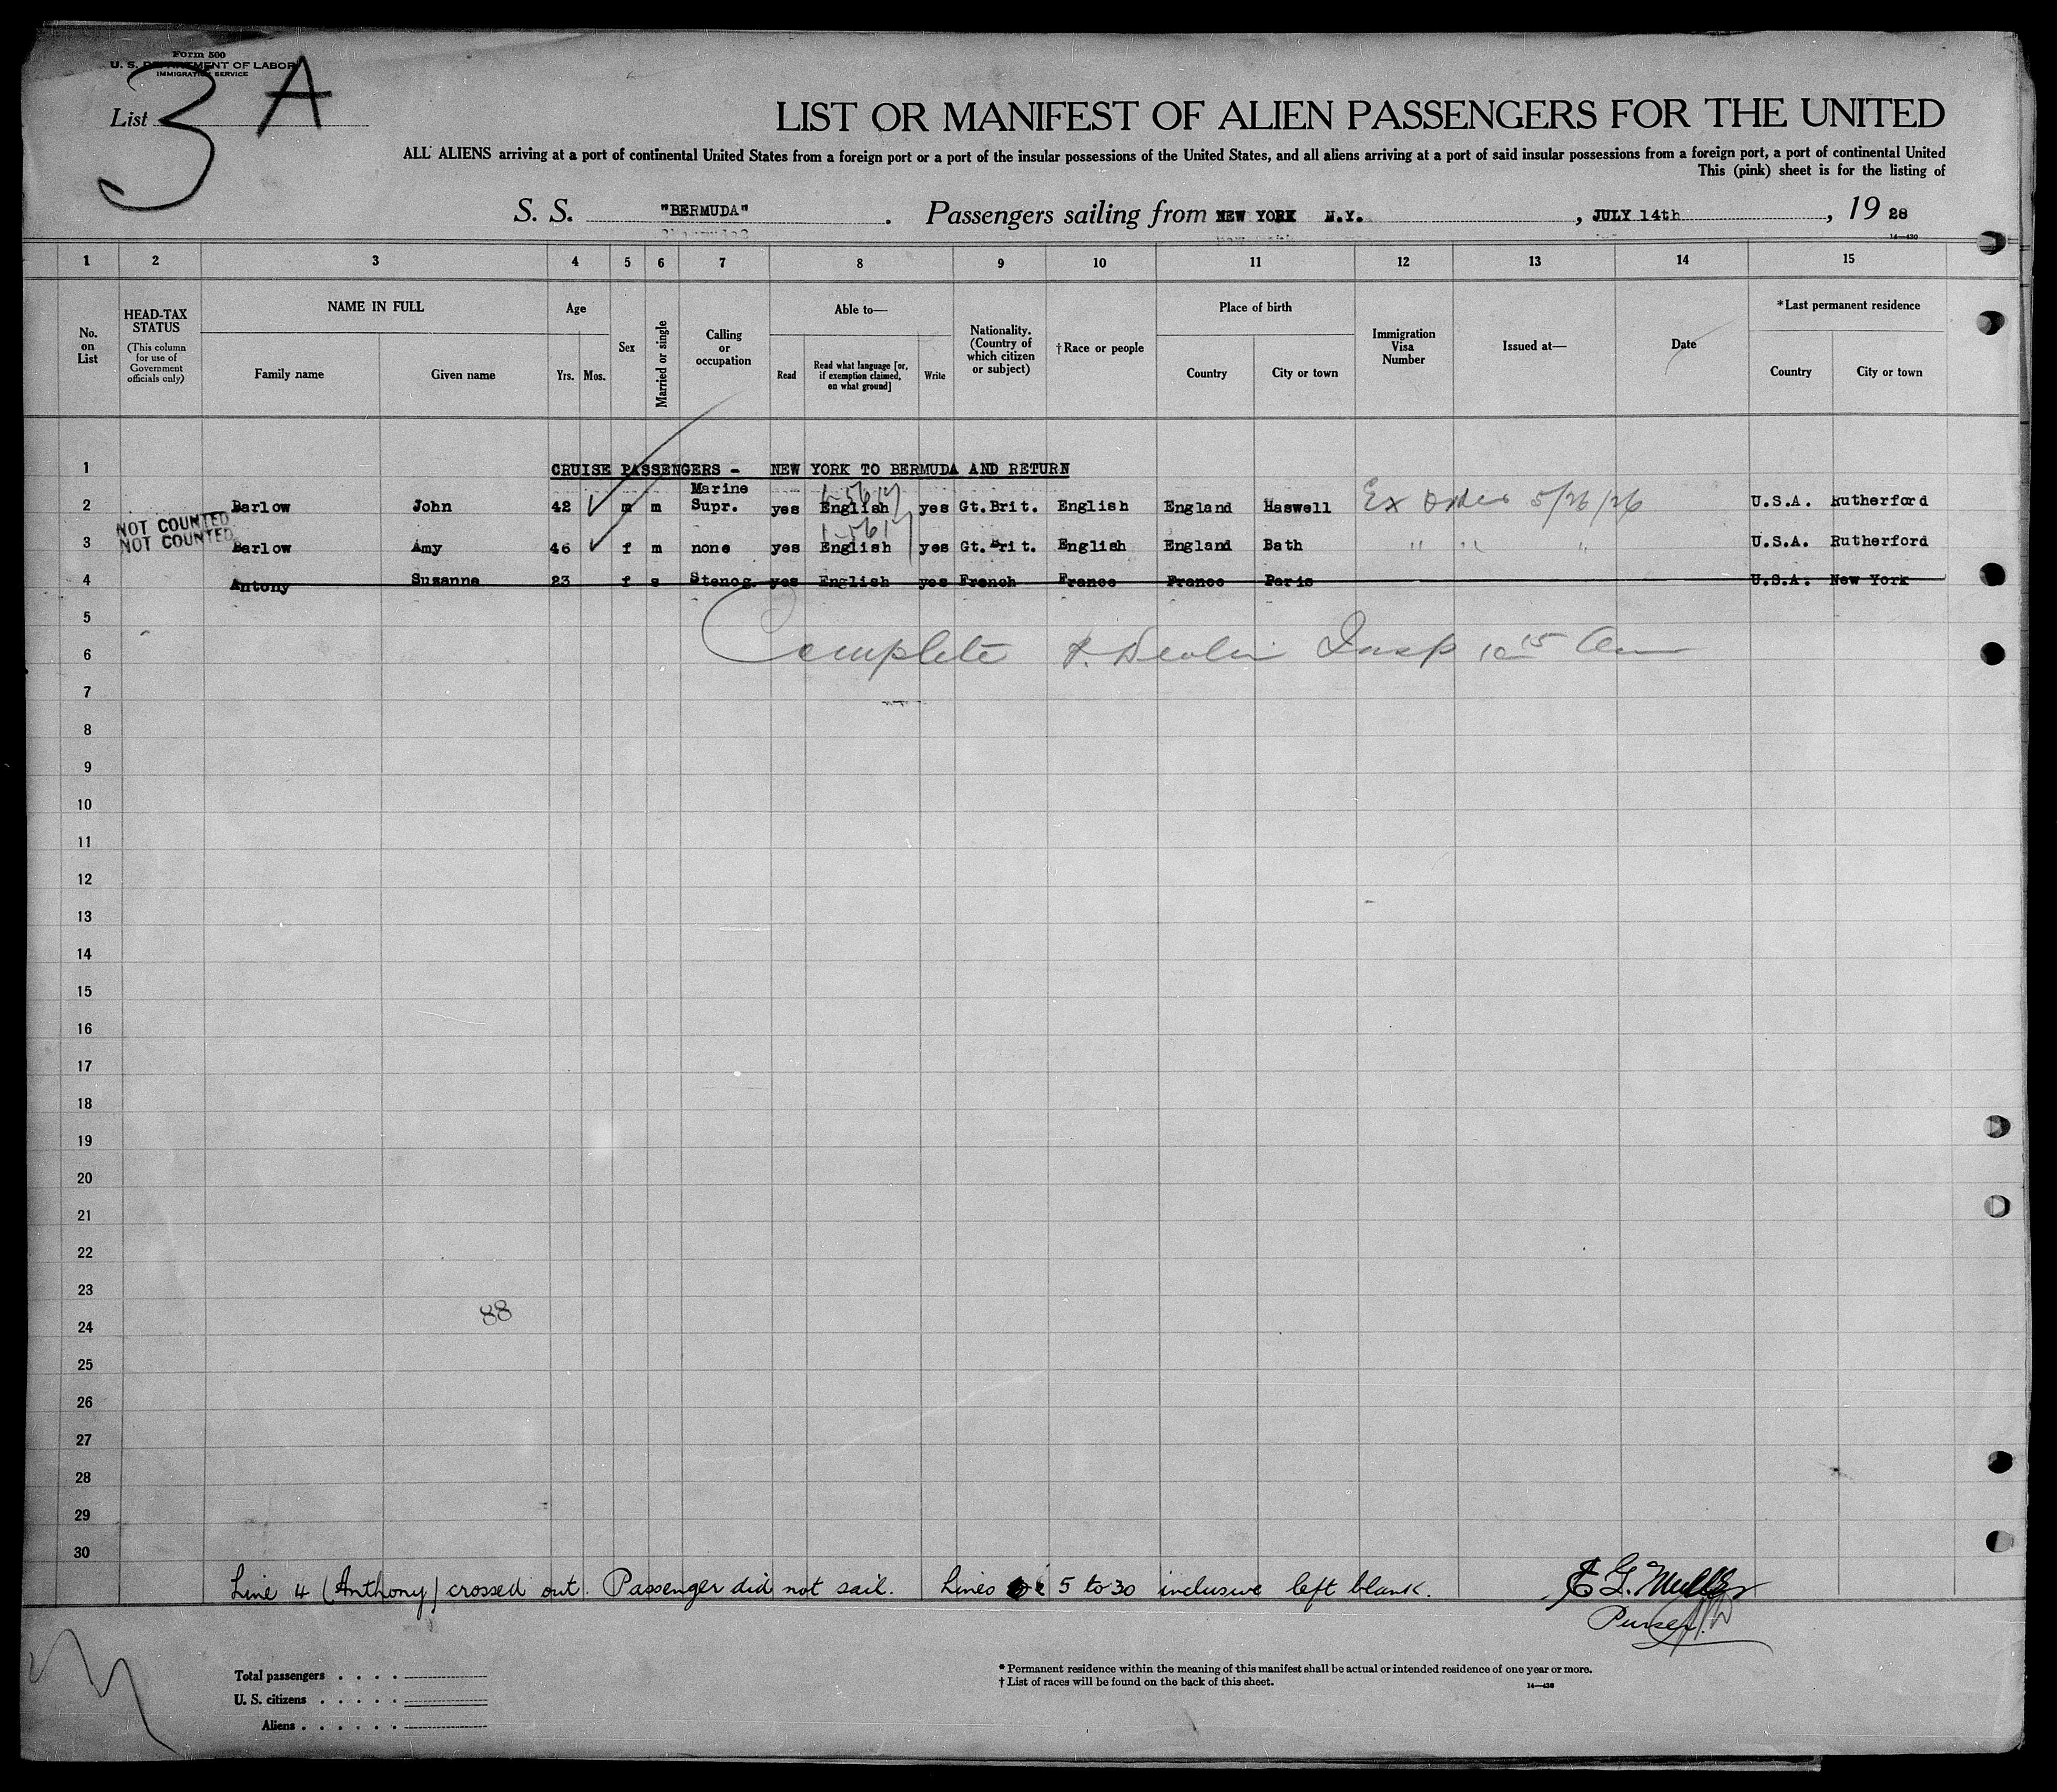 Form 500
U. S. DEPARTMENT OF LABOR
IMMIGRATION SERVICE
List 3 A
LIST OR MANIFEST OF ALIEN PASSENGERS FOR THE UNITED
ALL ALIENS arriving at a port of continental United States from a foreign port or a port of the insular possessions of the United States, and all aliens arriving at a port of said insular possessions from a foreign port, a port of continental United
This (pink) sheet is for the listing of
S. S. "BERMUDA". Passengers sailing from NEW YORK N.Y., JULY 14th, 1928
14—430
1 2 3 4 5 6 7 8 9 10 11 12 13 14 15
No. on List
HEAD-TAX STATUS
(This column for use of Government officials only)
NAME IN FULL
Family name Given name
Age
Yrs. Mos.
Sex
Married or single
Calling or occupation
Able to—
Read
Read what language [or, if exemption claimed, on what ground]
Write
Nationality. (Country of which citizen or subject)
†Race or people
Place of birth
Country City or town
Immigration Visa Number
Issued at—
Date
*Last permanent residence
Country City or town
1 CRUISE PASSENGERS - NEW YORK TO BERMUDA AND RETURN
2 Barlow John 42 m m Marine Supr. yes English yes Gt.Brit. English England Haswell Ex Order 5/26/26 U.S.A. Rutherford
NOT COUNTED
NOT COUNTED
3 Barlow Amy 46 f m none yes English yes Gt.Brit. English England Bath " " " U.S.A. Rutherford
4 Antony Suzanne 23 f s Stenog. yes English yes French France France Paris U.S.A. New York
5
6 Complete Insp 10 15 Am
7
8
9
10
11
12
13
14
15
16
17
18
19
20
21
22
23
88
24
25
26
27
28
29
30
Line 4 (Anthony) crossed out. Passenger did not sail. Lines 5 to 30 inclusive left blank.
Purser.
Total passengers . . . .
U. S. citizens . . . . .
Aliens . . . . . .
* Permanent residence within the meaning of this manifest shall be actual or intended residence of one year or more.
† List of races will be found on the back of this sheet.
14—430